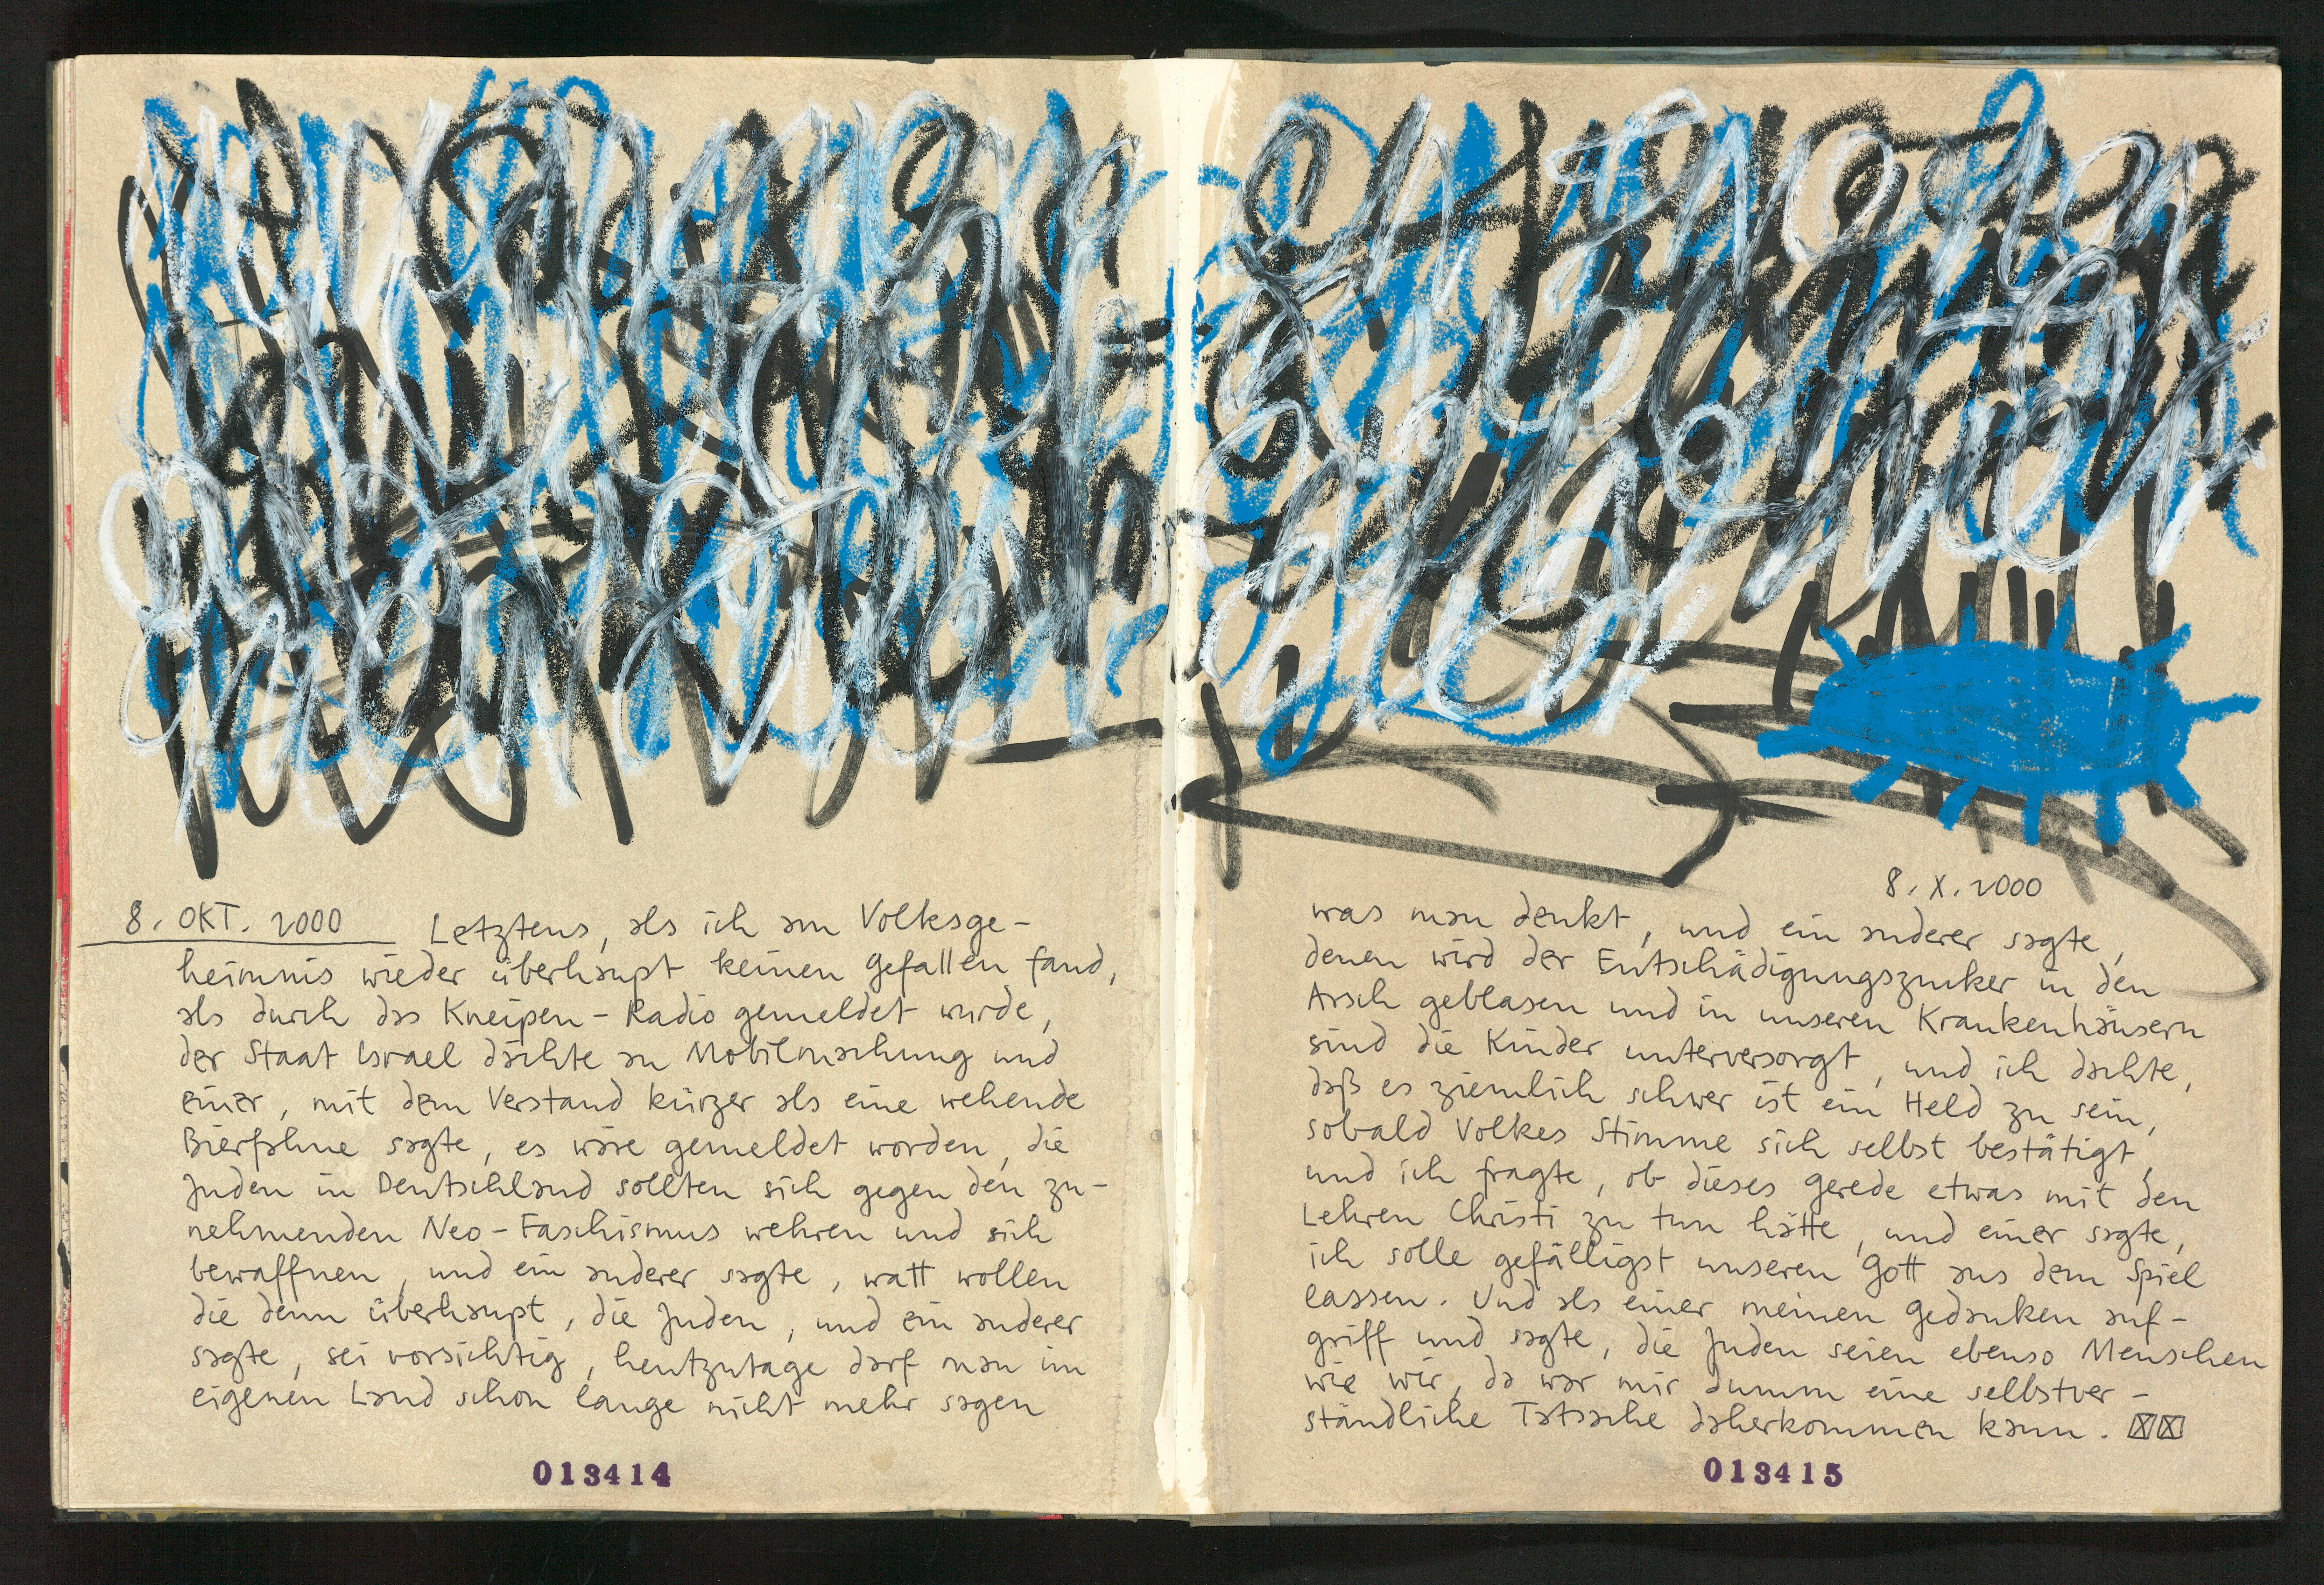 8. OKT. 2000 Letztens, als ich am Volksge-
heimnis wieder überhaupt keinen Gefallen fand,
als durch das Kneipen-Radio gemeldet wurde,
der Staat Israel dächte an Mobilmachung und
einer, mit dem Verstand kürzer als eine wehende
Bierfahne sagte, es wäre gemeldet worden, die
Juden in Deutschland sollten sich gegen den zu-
nehmenden Neo-Faschismus wehren und sich
bewaffnen, und ein anderer sagte, watt wollen
die denn überhaupt, die Juden, und ein anderer
sagte, sei vorsichtig, heutzutage darf man im
eigenen Land schon lange nicht mehr sagen
013414
8. X. 2000
was man denkt, und ein anderer sagte,
denen wird der Entschädigungszucker in den
Arsch geblasen und in unseren Krankenhäusern
sind die Kinder unterversorgt, und ich dachte,
daß es ziemlich schwer ist ein Held zu sein,
sobald Volkes Stimme sich selbst bestätigt,
und ich fragte, ob dieses Gerede etwas mit den
Lehren Christi zu tun hätte, und einer sagte,
ich solle gefälligst unseren Gott aus dem Spiel
lassen. Und als einer meinen Gedanken auf-
griff und sagte, die Juden seien ebenso Menschen
wie wir, da war mir dumm eine selbstver-
ständliche Tatsache daherkommen kann.
013415